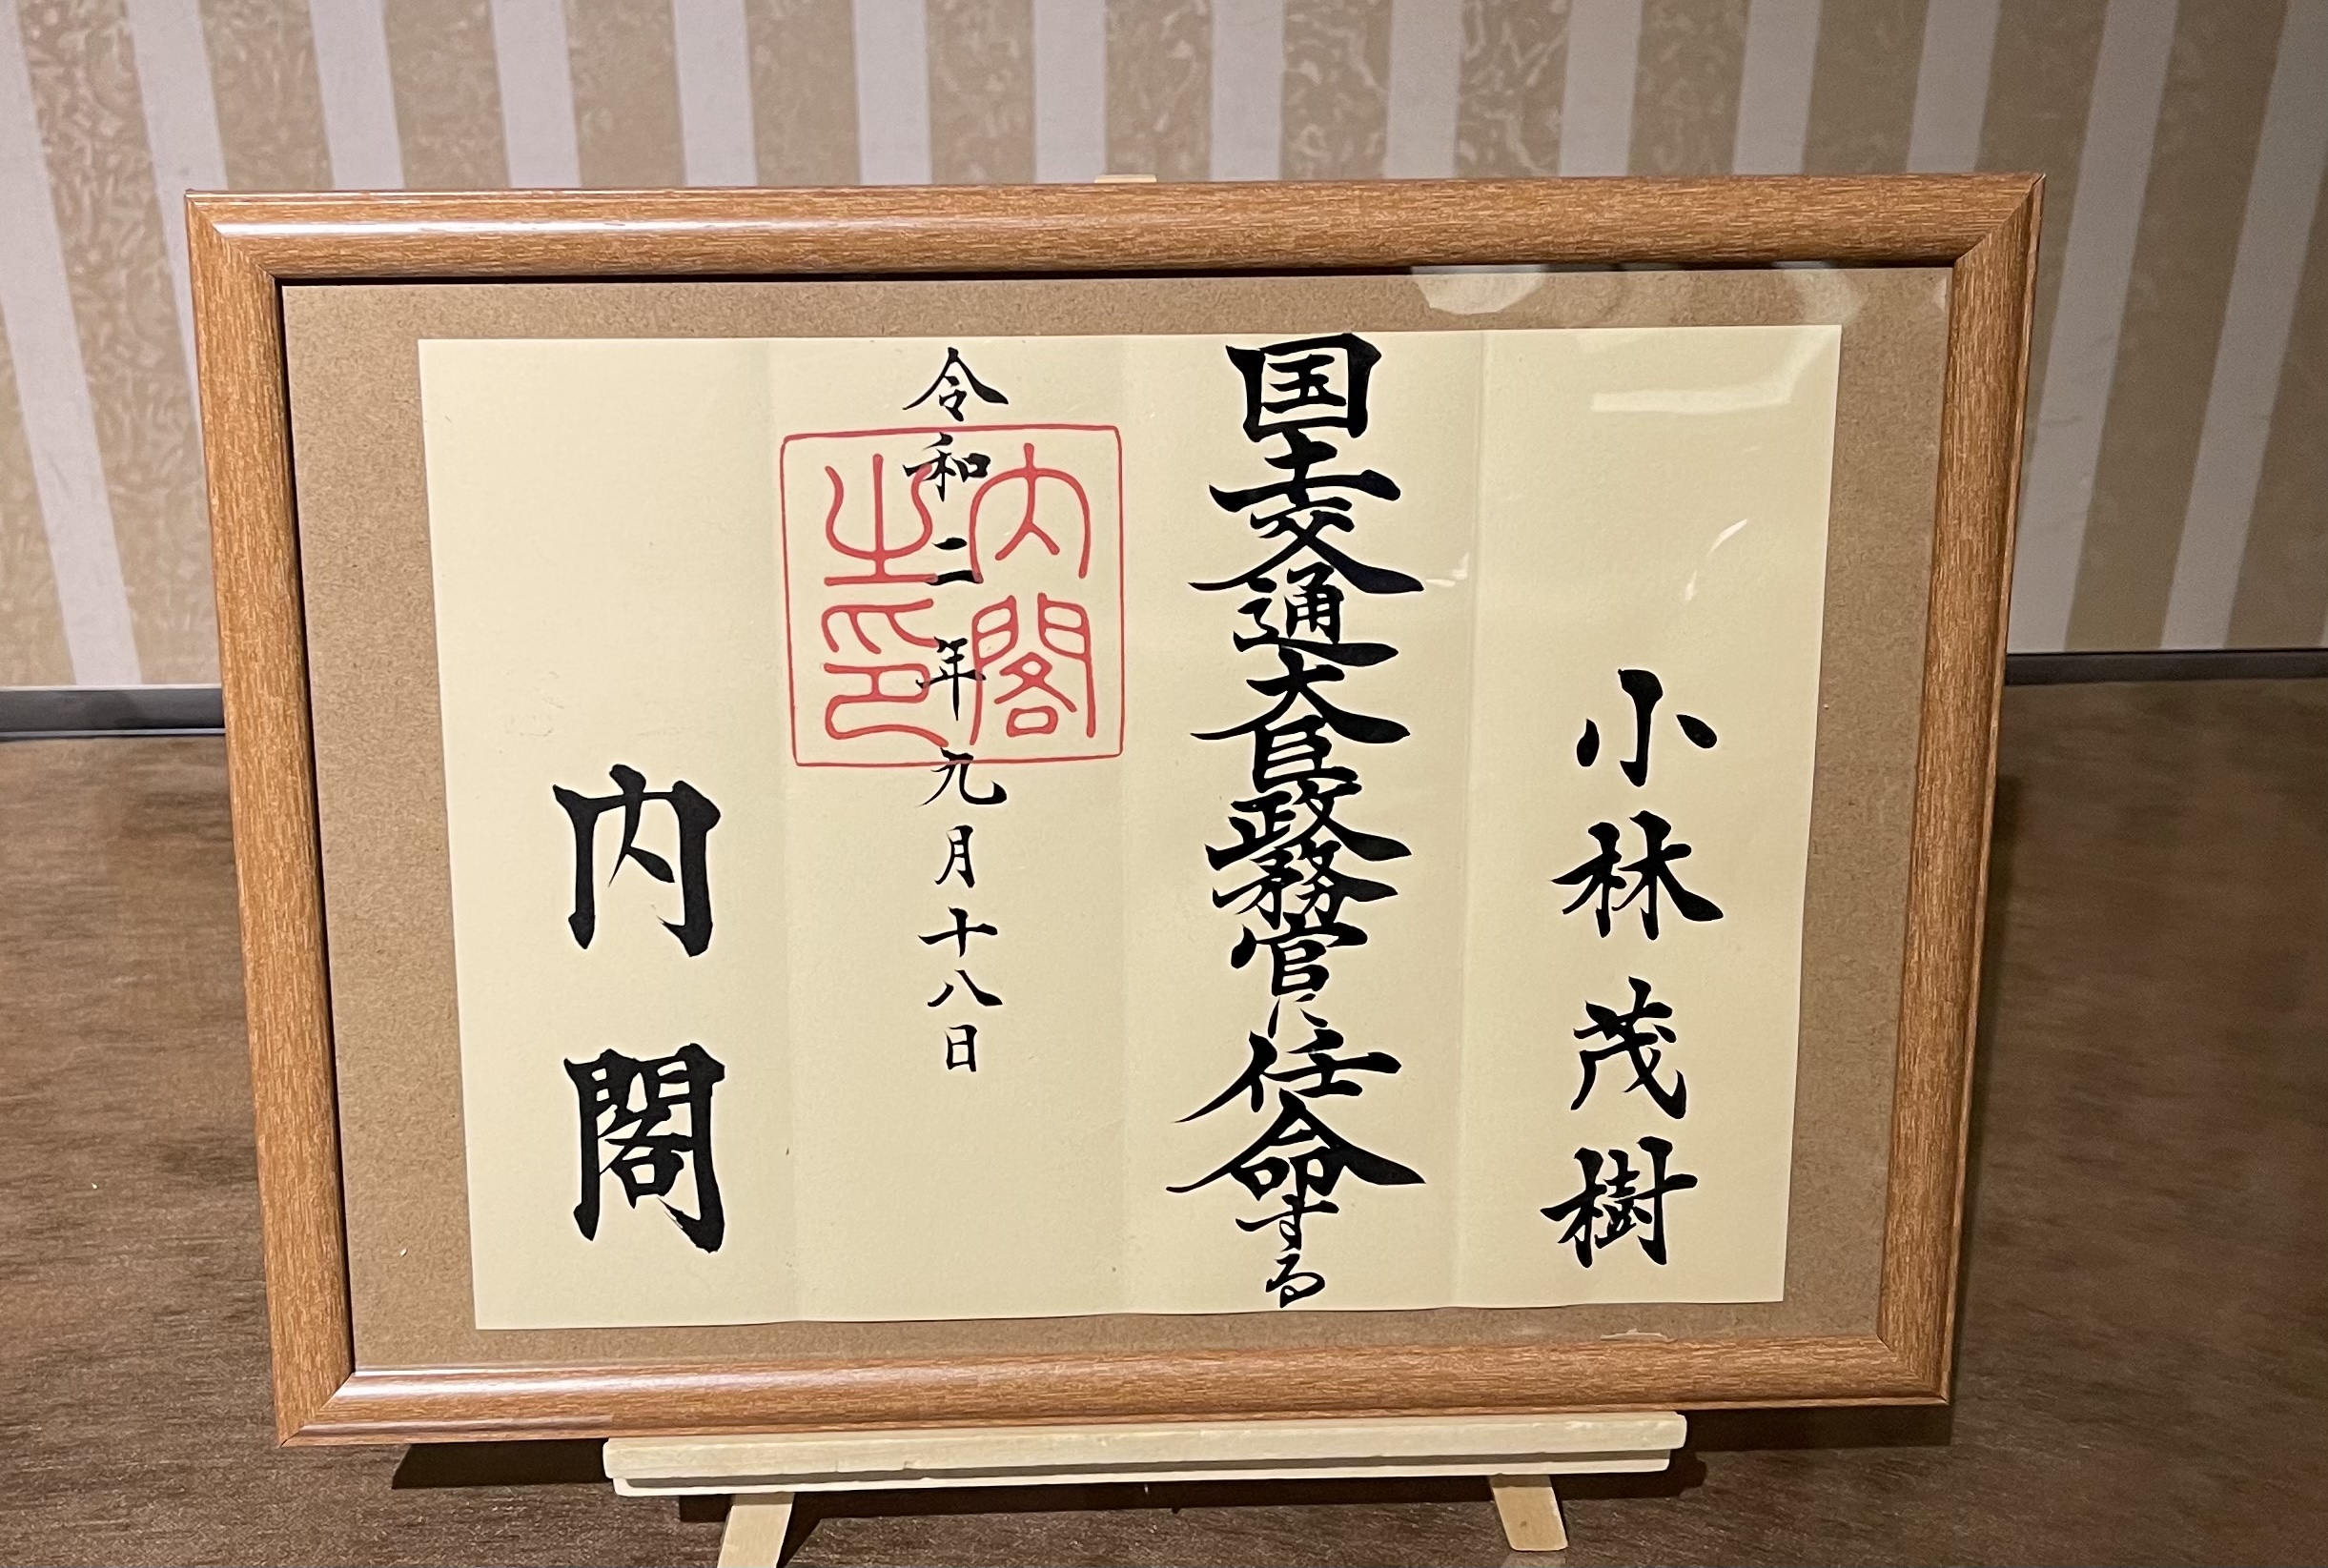 小林茂樹
国土交通大臣政務官に任命する
令和二年九月十八日
内閣之印
内閣